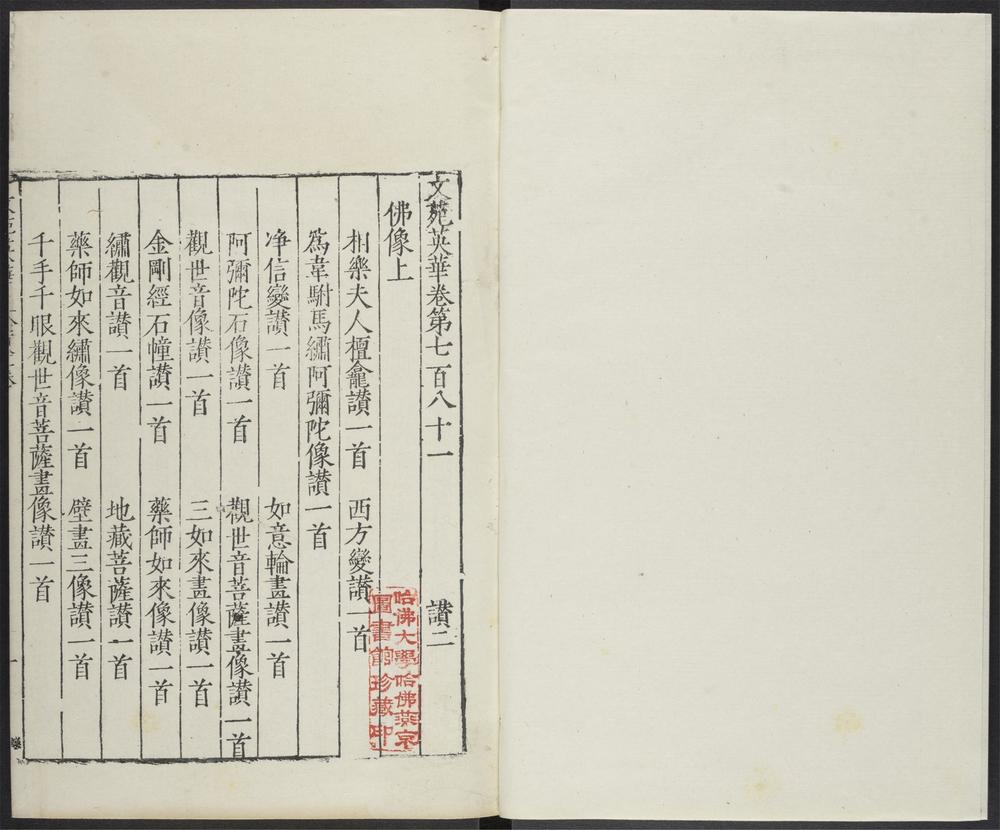 文苑英華卷第七百八十一　讃二
佛像上
相樂夫人檀龕讃一首　西方變讃一首
爲韋駙馬繡阿彌陀像讃一首
净信變讃一首　如意輪畫讃一首
阿彌陀石像讃一首　觀世音菩薩畫像讃一首
觀世音像讃一首　三如來畫像讃一首
金剛經石幢讃一首　藥師如來像讃一首
繡觀音讃一首　地藏菩薩讃一首
藥師如來繡像讃一首　壁畫三像讃一首
千手千眼觀世音菩薩畫像讃一首
哈佛大學哈佛燕京
圖書館珍藏印